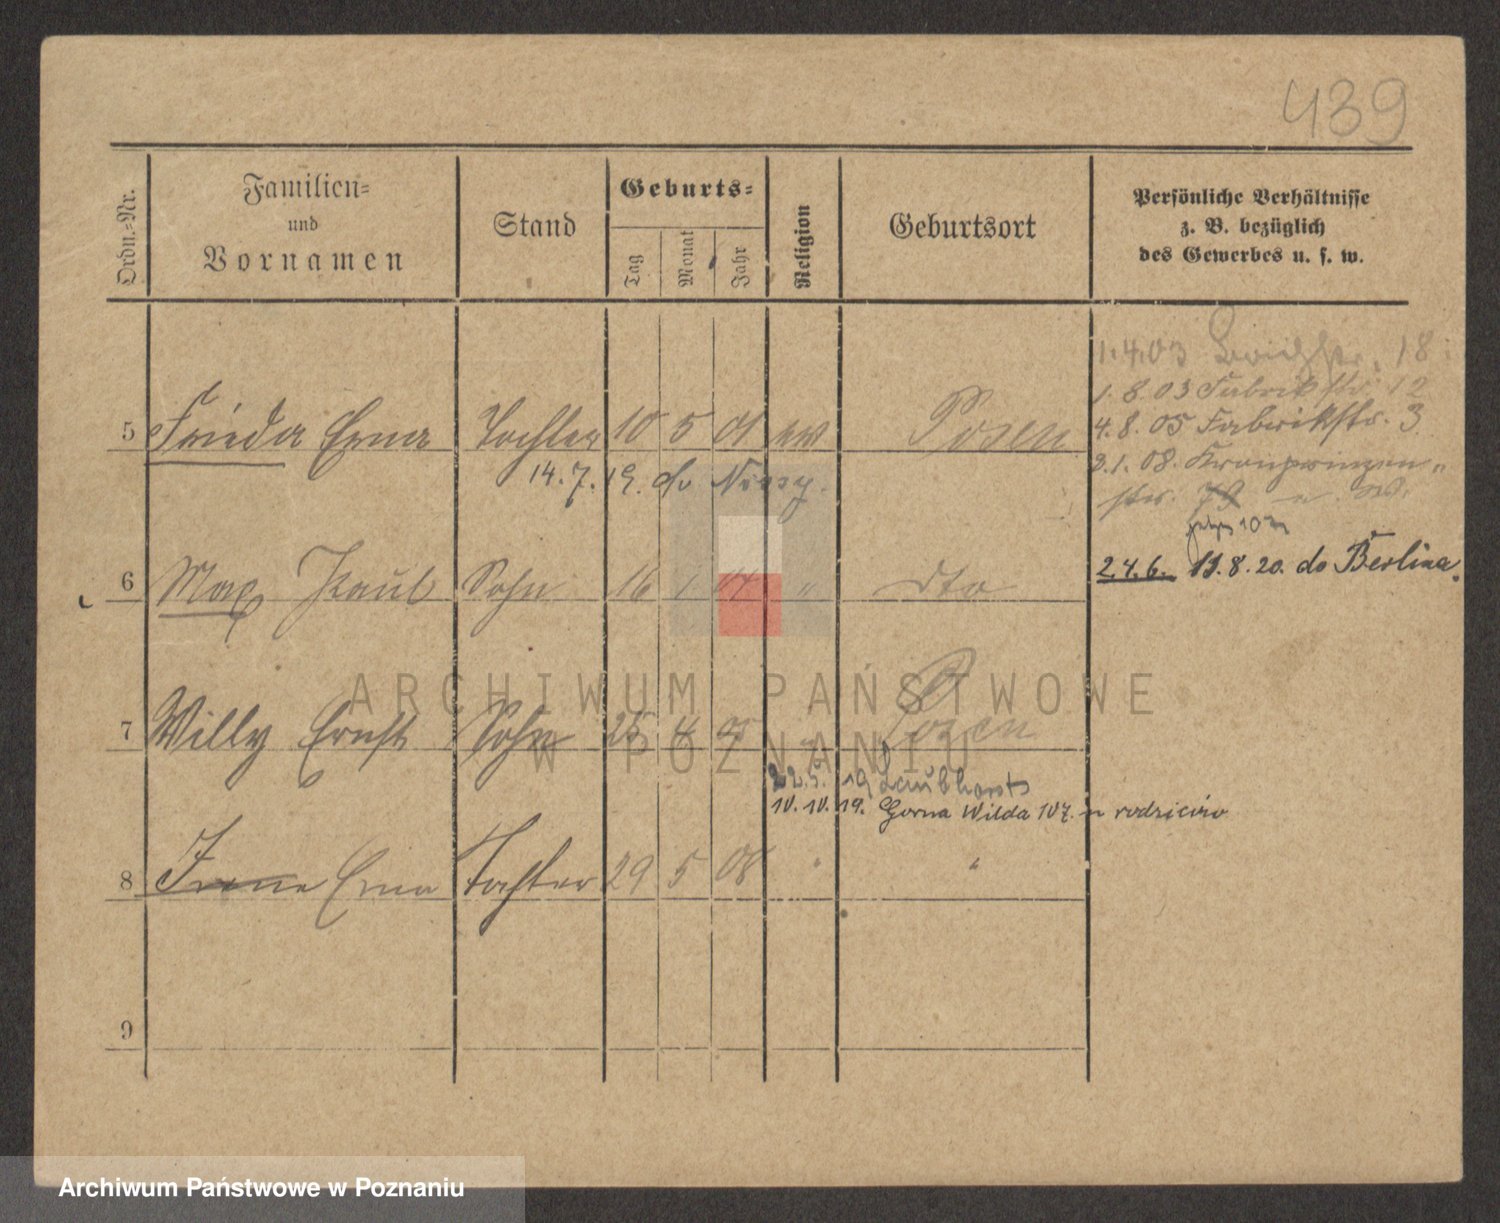 439
Ordn.-Nr.
Familien-
und
Vornamen
Stand
Geburts-
Tag
Monat
Jahr
Religion
Geburtsort
Persönliche Verhältnisse
z. B. bezüglich
des Gewerbes u. s. w.
1.4.03 18
1.8.03 Fabrikstr. 12
4.8.05 Fabrikstr. 3
3.1.08. Kronprinzen-
str.
5 Frieda Erna Tochter 10 5 01 ev Posen
14.7.19. do
2.4.6. 11.8.20. do Berlina.
6 Max Paul Sohn 16 1 04 " dto
7 Willy Ernst Sohn 25 4 Posen
22.5.19 Laubhorst
10.10.19. Gorna Wilda 107. u rodziców
8 Irene Erna Tochter 29 5 08 " "
9
ARCHIWUM PAŃSTWOWE
W POZNANIU
Archiwum Państwowe w Poznaniu